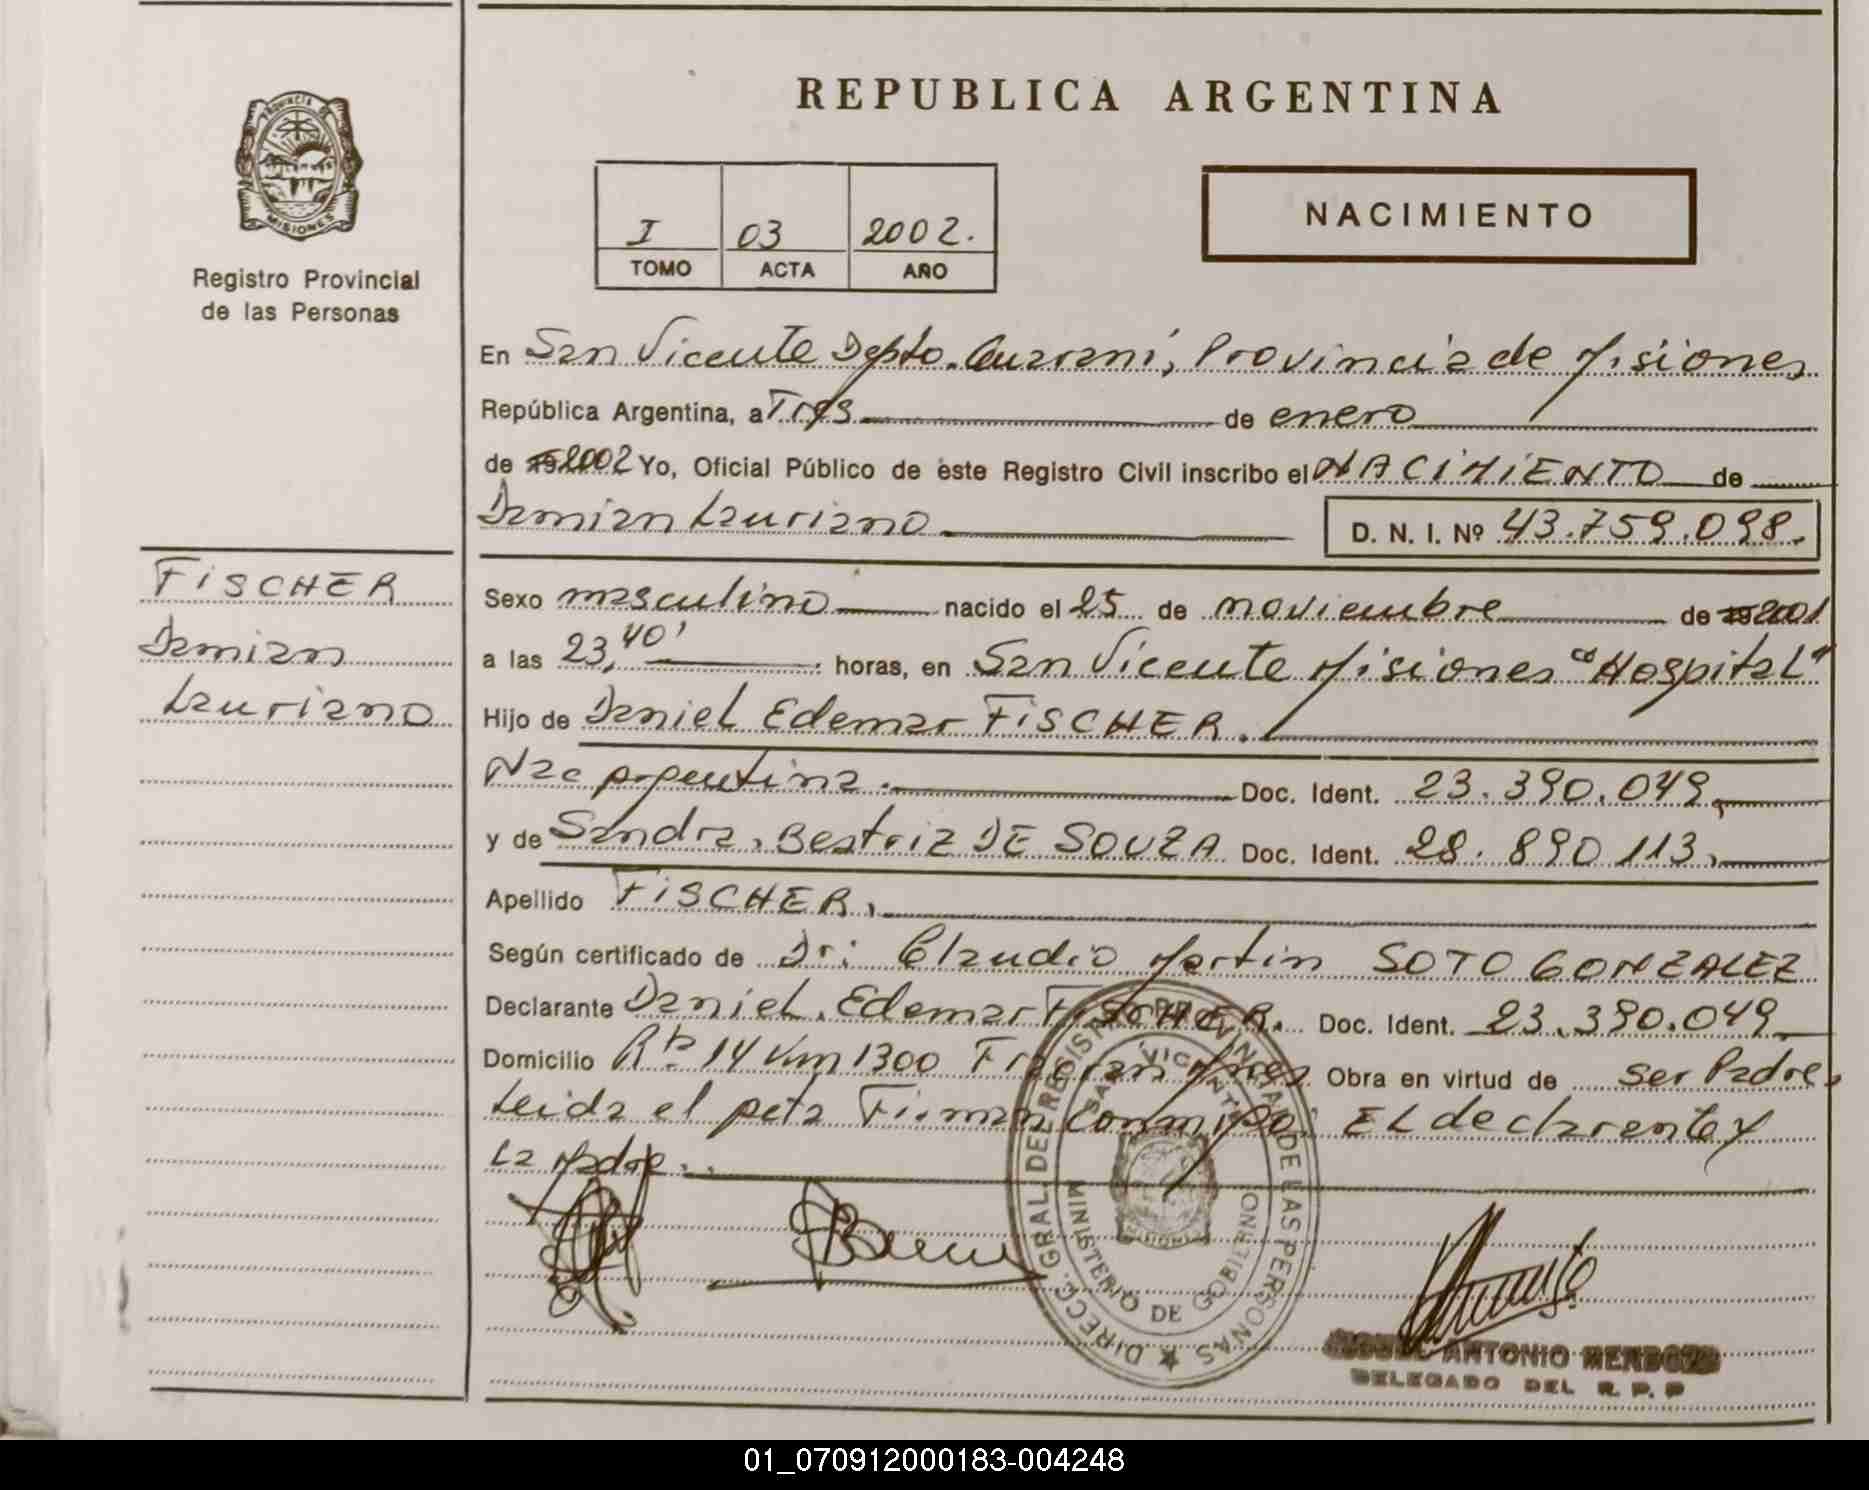 PROVINCIA DE
MISIONES
Registro Provincial
de las Personas
REPUBLICA ARGENTINA
I 03 2002.
TOMO ACTA AÑO
NACIMIENTO
En San Vicente Depto. Guarani, Provincia de Misiones
República Argentina, a Tres de enero
de 19 2002 Yo, Oficial Público de este Registro Civil inscribo el NACIMIENTO de
Damian Lauriano
D. N. I. Nº 43.759.098.
FISCHER
Damian
Lauriano
Sexo masculino nacido el 25 de noviembre de 19 2001
a las 23,40' horas, en San Vicente Misiones "Hospital"
Hijo de Daniel Edemar FISCHER.
Nac Argentina. Doc. Ident. 23.390.049,
y de Sandra, Beatriz DE SOUZA Doc. Ident. 28.890 113.
Apellido FISCHER,
Según certificado de Dr: Claudio Martin SOTO GONZALEZ
Declarante Daniel, Edemar FISCHER. Doc. Ident. 23.390.049
Domicilio Rta 14 Km 1300 Fracran Mnes Obra en virtud de ser Padre,
Leida el Acta Firman Conmigo: El declarante y
La Madre.
DIRECC. GRAL. DEL REGISTRO PROVINCIAL DE LAS PERSONAS
SAN VICENTE
MISIONES
MINISTERIO DE GOBIERNO
ANTONIO MENDOZA
DELEGADO DEL R. P. P
01_070912000183-004248